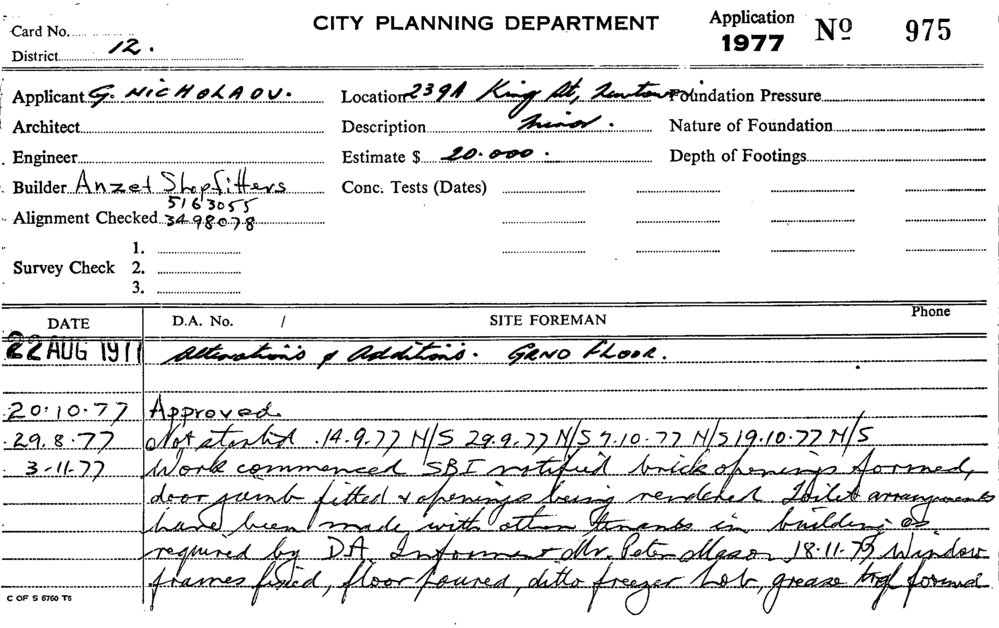 CITY PLANNING DEPARTMENT
Application 1977 Nº 975
Card No.
District 12.
Applicant G. NICHOLAOU. Location 239A King St, Newtown Foundation Pressure
Architect Description Minor. Nature of Foundation
Engineer Estimate $ 20.000. Depth of Footings
Builder Anzet Shopfitters Conc. Tests (Dates)
5163055
Alignment Checked 3498078
1.
Survey Check 2.
3.
DATE D.A. No. / SITE FOREMAN Phone
22 AUG 1977 Alterations & Additions. GRND FLOOR.
20.10.77 Approved.
29.8.77 Not started 14.9.77 N/S 29.9.77 N/S 7.10.77 N/S 19.10.77 N/S
3-11-77 Work commenced SBI notified brick openings formed,
door jamb fitted & openings being rendered Toilet arrangements
have been made with other tenants in building as
required by D.A. Informent Mr. Peter Mason 18.11.77 Window
frames fixed, floor poured, ditto freezer hob, grease trap formed
C OF S 6760 T6